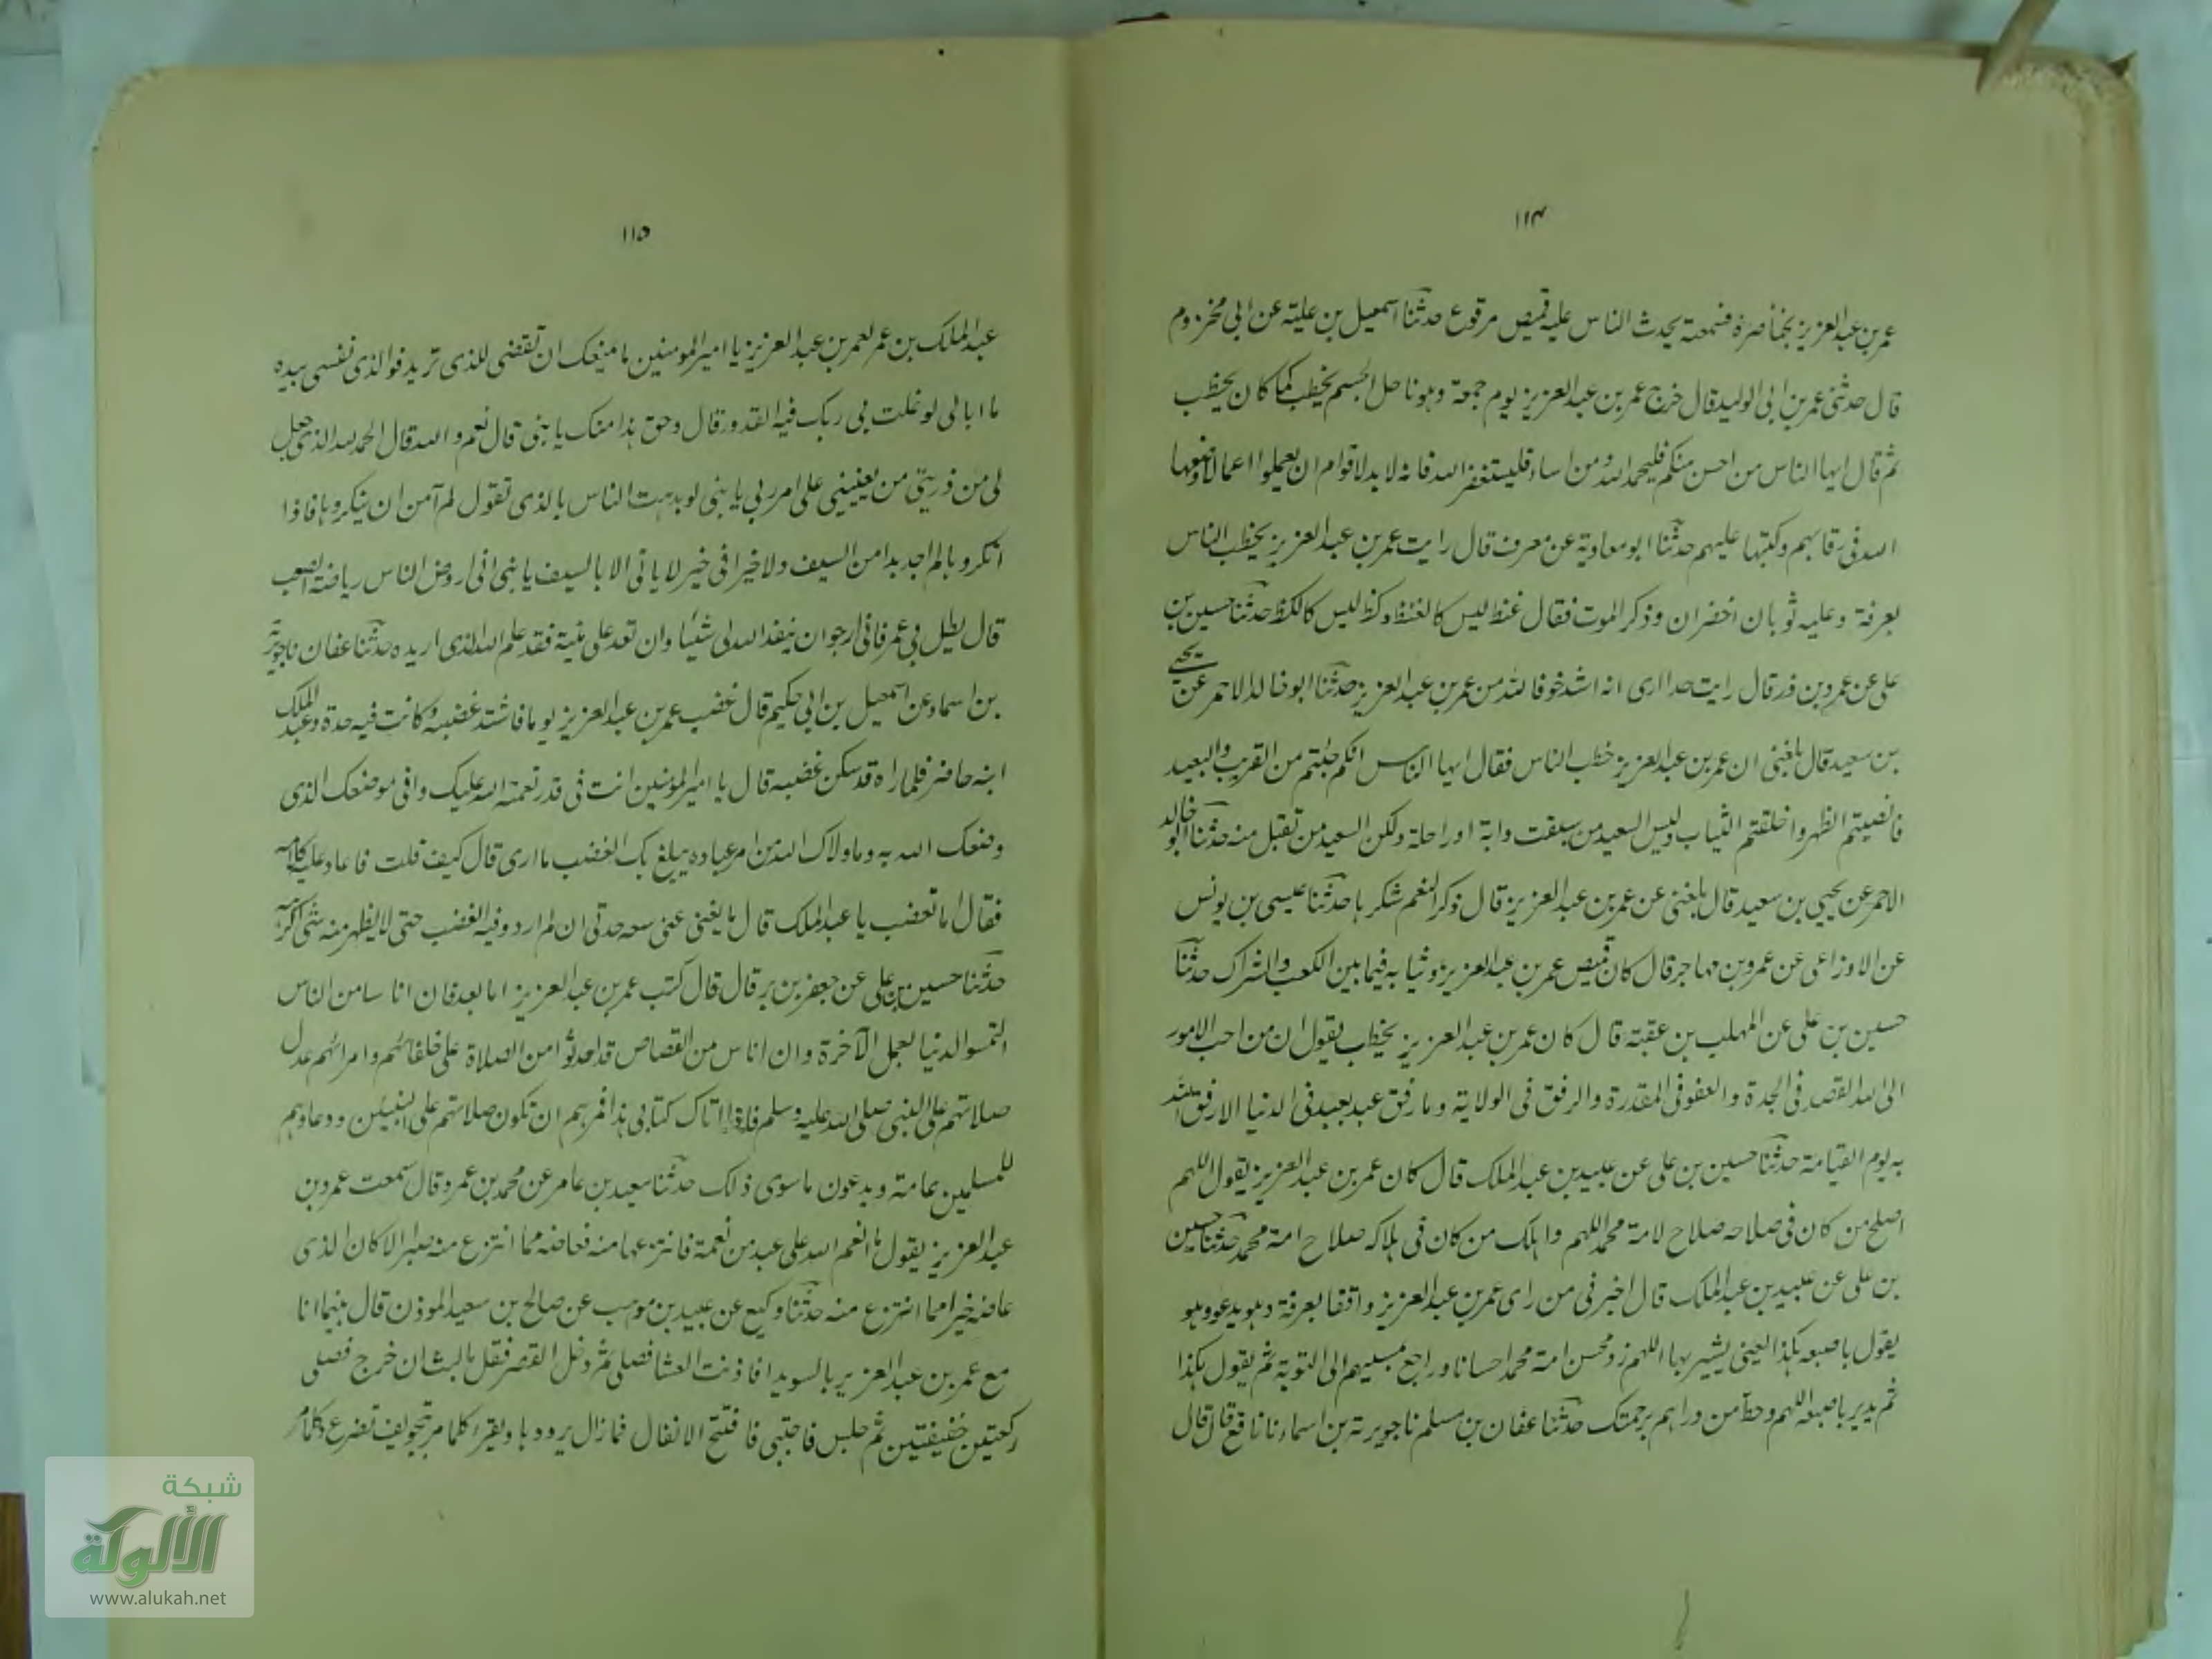 ١١٤
عمر بن عبد العزيز بخناصرة فسمعته يحدث الناس عليه قميص مرقوع حدثنا اسمعيل بن علية عن ابى مخزوم
قال حدثنى عمر بن ابى الوليد قال خرج عمر بن عبد العزيز يوم جمعة وهو ناحل الجسم يخطب كما كان يخطب
ثم قال ايها الناس من احسن منكم فليحمد الله ومن اساء فليستغفر الله فانه لا بد لاقوام ان يعملوا اعمالا وضعها
الله فى رقابهم وكتبها عليهم حدثنا ابو معاوية عن معرف قال رايت عمر بن عبد العزيز يخطب الناس
بعرفة وعليه ثوبان اخضران وذكر الموت فقال غنظ ليس كالغنظ وكظ ليس كالكظ حدثنا حسين بن
على عن عمر وبن ذر قال رايت حدا ارى انه اشد خوفا لله من عمر بن عبد العزيز حدثنا ابو خالد الاحمر عن يحيى
بن سعيد قال بلغنى ان عمر بن عبد العزيز خطب الناس فقال ايها الناس انكم جئتم من القريب والبعيد
فانضيتم الظهر واخلقتم الثياب وليس السعيد من سبقت دابة او راحلة ولكن السعيد من تقبل منه حدثنا ابو خالد
الاحمر عن يحيى بن سعيد قال بلغنى عن عمر بن عبد العزيز قال ذكر النعم شكرها حدثنا عيسى بن يونس
عن الاوزاعى عن عمرو بن مهاجر قال كان قميص عمر بن عبد العزيز وثيابه فيما بين الكعب والشراك حدثنا
حسين بن على عن المهلب بن عقبة قال كان عمر بن عبد العزيز يخطب يقول ان من احب الامور
الى الله القصد فى الجدة والعفو فى المقدرة والرفق فى الولاية وما رفق عبد بعبد فى الدنيا الا رفق الله
به يوم القيامة حدثنا حسين بن على عن عبيد بن عبد الملك قال كان عمر بن عبد العزيز يقول اللهم
اصلح من كان فى صلاحه صلاح لامة محمد اللهم واهلك من كان فى هلاكه صلاح امة محمد حدثنا حسين
بن على عن عبيد بن عبد الملك قال اخبرنى من راى عمر بن عبد العزيز واقفا بعرفة وهو يدعو وهو
يقول باصبعه هكذا يعنى يشير بها اللهم زد محسن امة محمد احسانا وراجع مسيهم الى التوبة ثم يقول هكذا
ثم يدير باصبعه اللهم وحط من وراهم برحمتك حدثنا عفان بن مسلم نا جويرية بن اسماء نا نافع قال قال
١١٥
عبد الملك بن عمر لعمر بن عبد العزيز يا امير المومنين ما منعك ان تقضى للذى تريد فوالذى نفسى بيده
ما ابالى لو غلت بى وبك فيه القدور قال وحق هذا منك يا بنى قال نعم والله قال الحمد لله الذى جعل
لى من ذريتى من يعيننى على امر ربى يا بنى لو بدهت الناس بالذى تقول لم آمن ان ينكروها فاذا
انكروها لم اجد بدا من السيف ولا خير فى خير لا ياتى الا بالسيف يا بنى انى اروض الناس رياضة الصعب
قال يطل بى عمر فانى ارجو ان ينفذ الله لى شئيا وان تعد على منية فقد علم الله الذى اريده حدثنا عفان نا جويرية
بن اسماء عن اسمعيل بن ابى حكيم قال غضب عمر بن عبد العزيز يوما فاشتد غضبه وكانت فيه حدة وعبد الملك
ابنه حاضر فلما راه قد سكن غضبه قال يا امير المومنين انت فى قدر نعمة الله عليك وفى موضعك الذى
وضعك الله به وما ولاك الله من امر عباده يبلغ بك الغضب ما ارى قال كيف قلت فاعاد عليه كلامه
فقال اما تغضب يا عبد الملك قال ما يغنى عنى سعه حدتى ان لم اردد فيه الغضب حتى لا يظهر منه شى اكرهه
حدثنا حسين بن على عن جعفر بن برقان قال كتب عمر بن عبد العزيز اما بعد فان اناسا من الناس
التمسو الدنيا بعمل الآخرة وان اناس من القصاص قد احدثوا من الصلاة على خلفائهم وامرائهم عدل
صلاتهم على النبى صلى الله عليه وسلم فاذا اتاك كتابى هذا فمرهم ان تكون صلاتهم على النبيين ودعاوهم
للمسلمين عامة ويدعون ما سوى ذلك حدثنا سعيد بن عامر عن محمد بن عمرو قال سمعت عمر وبن
عبد العزيز يقول ما انعم الله على عبد من نعمة فانتزعها منه فعاضه مما انتزع منه صبرا الا كان الذى
عاضه خيرا مما انتزع منه حدثنا وكيع عن عبيد بن موهب عن صالح بن سعيد الموذن قال بينما انا
مع عمر بن عبد العزيز بالسويدا فاذنت العشا فصلى ثم دخل القصر فقل ما لبث ان خرج فصلى
ركعتين خفيفتين ثم جلس فاحتبى فافتتح الانفال فما زال يرددها ويقرا كلما مر بتخويف تضرع وكلما مر
شبكة
الألوكة
www.alukah.net